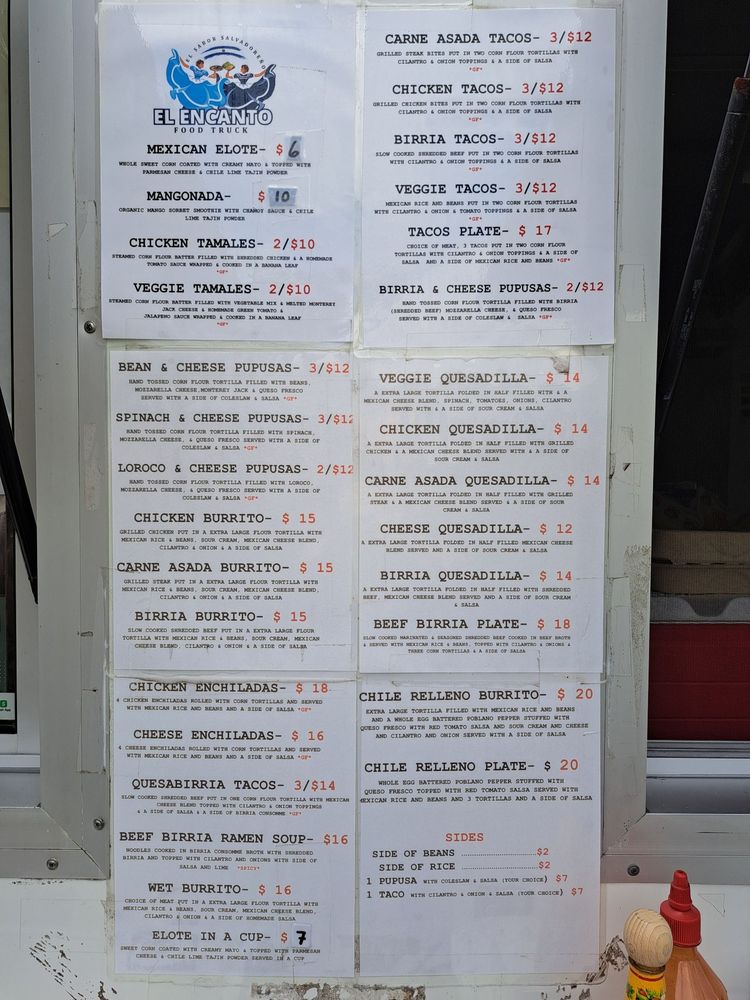 EL SABOR SALVADOREÑO
EL ENCANTO
FOOD TRUCK
MEXICAN ELOTE- $ 6
WHOLE SWEET CORN COATED WITH CREAMY MAYO & TOPPED WITH
PARMESAN CHEESE & CHILE LIME TAJIN POWDER
MANGONADA- $ 10
ORGANIC MANGO SORBET SMOOTHIE WITH CHAMOY SAUCE & CHILE
LIME TAJIN POWDER
CHICKEN TAMALES- 2/$10
STEAMED CORN FLOUR BATTER FILLED WITH SHREDDED CHICKEN & A HOMEMADE
TOMATO SAUCE WRAPPED & COOKED IN A BANANA LEAF
*GF*
VEGGIE TAMALES- 2/$10
STEAMED CORN FLOUR BATTER FILLED WITH VEGETABLE MIX & MELTED MONTEREY
JACK CHEESE & HOMEMADE GREEN TOMATO &
JALAPENO SAUCE WRAPPED & COOKED IN A BANANA LEAF
*GF*
BEAN & CHEESE PUPUSAS- 3/$12
HAND TOSSED CORN FLOUR TORTILLA FILLED WITH BEANS,
MOZZARELLA CHEESE,MONTEREY JACK & QUESO FRESCO
SERVED WITH A SIDE OF COLESLAW & SALSA *GF*
SPINACH & CHEESE PUPUSAS- 3/$12
HAND TOSSED CORN FLOUR TORTILLA FILLED WITH SPINACH,
MOZZARELLA CHEESE, & QUESO FRESCO SERVED WITH A SIDE OF
COLESLAW & SALSA *GF*
LOROCO & CHEESE PUPUSAS- 2/$12
HAND TOSSED CORN FLOUR TORTILLA FILLED WITH LOROCO,
MOZZARELLA CHEESE, & QUESO FRESCO SERVED WITH A SIDE OF
COLESLAW & SALSA *GF*
CHICKEN BURRITO- $ 15
GRILLED CHICKEN PUT IN A EXTRA LARGE FLOUR TORTILLA WITH
MEXICAN RICE & BEANS, SOUR CREAM, MEXICAN CHEESE BLEND,
CILANTRO & ONION & A SIDE OF SALSA
CARNE ASADA BURRITO- $ 15
GRILLED STEAK PUT IN A EXTRA LARGE FLOUR TORTILLA WITH
MEXICAN RICE & BEANS, SOUR CREAM, MEXICAN CHEESE BLEND,
CILANTRO & ONION & A SIDE OF SALSA
BIRRIA BURRITO- $ 15
SLOW COOKED SHREDDED BEEF PUT IN A EXTRA LARGE FLOUR
TORTILLA WITH MEXICAN RICE & BEANS, SOUR CREAM, MEXICAN
CHEESE BLEND, CILANTRO & ONION & A SIDE OF SALSA
CHICKEN ENCHILADAS- $ 18
4 CHICKEN ENCHILADAS ROLLED WITH CORN TORTILLAS AND SERVED
WITH MEXICAN RICE AND BEANS AND A SIDE OF SALSA *GF*
CHEESE ENCHILADAS- $ 16
4 CHEESE ENCHILADAS ROLLED WITH CORN TORTILLAS AND SERVED
WITH MEXICAN RICE AND BEANS AND A SIDE OF SALSA *GF*
QUESABIRRIA TACOS- 3/$14
SLOW COOKED SHREDDED BEEF PUT IN ONE CORN FLOUR TORTILLA WITH MEXICAN
CHEESE BLEND TOPPED WITH CILANTRO & ONION TOPPINGS
& A SIDE OF SALSA & A SIDE OF BIRRIA CONSOMME *GF*
BEEF BIRRIA RAMEN SOUP- $16
NOODLES COOKED IN BIRRIA CONSOMME BROTH WITH SHREDDED
BIRRIA AND TOPPED WITH CILANTRO AND ONIONS WITH SIDE OF
SALSA AND LIME *SPICY*
WET BURRITO- $ 16
CHOICE OF MEAT PUT IN A EXTRA LARGE FLOUR TORTILLA WITH
MEXICAN RICE & BEANS, SOUR CREAM, MEXICAN CHEESE BLEND,
CILANTRO & ONION & A SIDE OF HOMEMADE SALSA
ELOTE IN A CUP- $ 7
SWEET CORN COATED WITH CREAMY MAYO & TOPPED WITH PARMESAN
CHEESE & CHILE LIME TAJIN POWDER SERVED IN A CUP
CARNE ASADA TACOS- 3/$12
GRILLED STEAK BITES PUT IN TWO CORN FLOUR TORTILLAS WITH
CILANTRO & ONION TOPPINGS & A SIDE OF SALSA
*GF*
CHICKEN TACOS- 3/$12
GRILLED CHICKEN BITES PUT IN TWO CORN FLOUR TORTILLAS WITH
CILANTRO & ONION TOPPINGS & A SIDE OF SALSA
*GF*
BIRRIA TACOS- 3/$12
SLOW COOKED SHREDDED BEEF PUT IN TWO CORN FLOUR TORTILLAS
WITH CILANTRO & ONION TOPPINGS & A SIDE OF SALSA
*GF*
VEGGIE TACOS- 3/$12
MEXICAN RICE AND BEANS PUT IN TWO CORN FLOUR TORTILLAS
WITH CILANTRO & ONION & TOMATO TOPPINGS & A SIDE OF SALSA
*GF*
TACOS PLATE- $ 17
CHOICE OF MEAT, 3 TACOS PUT IN TWO CORN FLOUR
TORTILLAS WITH CILANTRO & ONION TOPPINGS & A SIDE OF
SALSA AND A SIDE OF MEXICAN RICE AND BEANS *GF*
BIRRIA & CHEESE PUPUSAS- 2/$12
HAND TOSSED CORN FLOUR TORTILLA FILLED WITH BIRRIA
(SHREDDED BEEF) MOZZARELLA CHEESE, & QUESO FRESCO
SERVED WITH A SIDE OF COLESLAW & SALSA *GF*
VEGGIE QUESADILLA- $ 14
A EXTRA LARGE TORTILLA FOLDED IN HALF FILLED WITH & A
MEXICAN CHEESE BLEND, SPINACH, TOMATOES, ONIONS, CILANTRO
SERVED WITH & A SIDE OF SOUR CREAM & SALSA
CHICKEN QUESADILLA- $ 14
A EXTRA LARGE TORTILLA FOLDED IN HALF FILLED WITH GRILLED
CHICKEN & A MEXICAN CHEESE BLEND SERVED WITH & A SIDE OF
SOUR CREAM & SALSA
CARNE ASADA QUESADILLA- $ 14
A EXTRA LARGE TORTILLA FOLDED IN HALF FILLED WITH GRILLED
STEAK & A MEXICAN CHEESE BLEND SERVED & A SIDE OF SOUR
CREAM & SALSA
CHEESE QUESADILLA- $ 12
A EXTRA LARGE TORTILLA FOLDED IN HALF FILLED MEXICAN CHEESE
BLEND SERVED AND A SIDE OF SOUR CREAM & SALSA
BIRRIA QUESADILLA- $ 14
A EXTRA LARGE TORTILLA FOLDED IN HALF FILLED WITH SHREDDED
BEEF, MEXICAN CHEESE BLEND SERVED AND A SIDE OF SOUR CREAM
& SALSA
BEEF BIRRIA PLATE- $ 18
SLOW COOKED MARINATED & SEASONED SHREDDED BEEF COOKED IN BEEF BROTH
& SERVED WITH MEXICAN RICE & BEANS, TOPPED WITH CILANTRO & ONIONS &
THREE CORN TORTILLAS & A SIDE OF SALSA
CHILE RELLENO BURRITO- $ 20
EXTRA LARGE TORTILLA FILLED WITH MEXICAN RICE AND BEANS
AND A WHOLE EGG BATTERED POBLANO PEPPER STUFFED WITH
QUESO FRESCO WITH RED TOMATO SALSA AND SOUR CREAM AND CHEESE
AND CILANTO AND ONION SERVED WITH A SIDE OF SALSA
CHILE RELLENO PLATE- $ 20
WHOLE EGG BATTERED POBLANO PEPPER STUFFED WITH
QUESO FRESCO TOPPED WITH RED TOMATO SALSA SERVED WITH
MEXICAN RICE AND BEANS AND 3 TORTILLAS AND A SIDE OF SALSA
SIDES
SIDE OF BEANS ......................$2
SIDE OF RICE ......................$2
1 PUPUSA WITH COLESLAW & SALSA (YOUR CHOICE) $7
1 TACO WITH CILANTRO & ONION & SALSA (YOUR CHOICE) $7